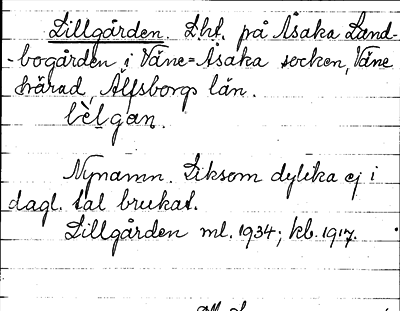 Lillgården. Lht. på Åsaka Land-
-bogården i Väne-Åsaka socken, Väne
härad, Älfsborgs län.
lèḷgan.
Nynamn. Liksom dylika ej i
dagl. tal brukat.
Lillgården ml. 1934; kb. 1917.